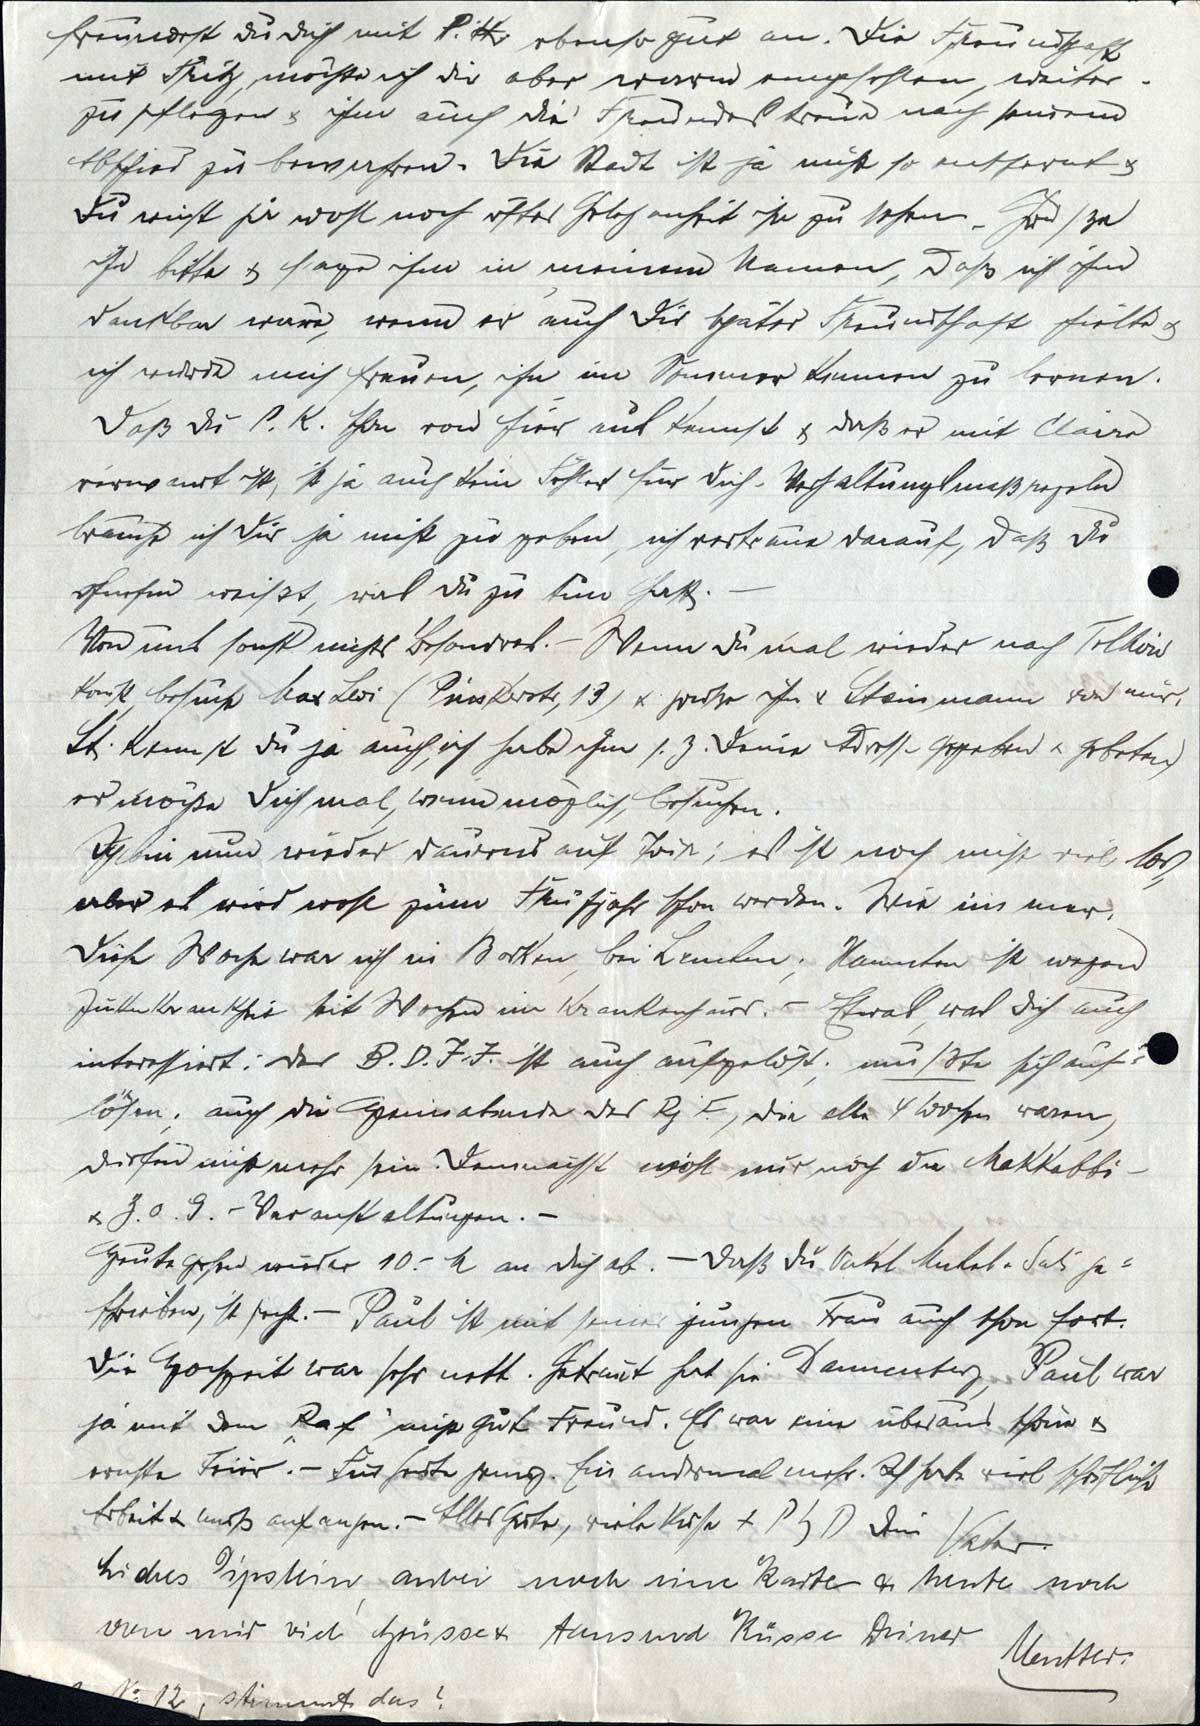 freundest du dich mit Pitt ebenso gut an. Die Freundschaft
mit Fritz, möchte ich dir aber warm empfehlen, weiter-
zu pflegen & ihm auch die Freundestreue nach seinem
Abschied zu bewahren. Die Stadt ist ja nicht so entfernt &
Du wirst ja wohl noch öfter Gelegenheit ihn zu sehen.
ihn bitte & sage ihm in meinem Namen, daß ich ihm
dankbar wäre, wenn er auch Dir später Freundschaft hielte &
ich würde mich freuen, ihn im Sommer kennen zu lernen.
Daß du P. K. schon von hier aus kennst & daß er mit Claire
verwandt ist, ist ja auch kein Fehler für dich. Verhaltungsmaßregeln
brauche ich Dir ja nicht zu geben, ich vertraue darauf, daß du
ohnehin weißt, was du zu tun hast. —
Von uns sonst nichts Besondres. — Wenn du mal wieder nach
kommst, besuche Max Levi ( 13) & grüße ihn & Steinmann von mir.
St. kennst du ja auch, ich habe ihm s. Z. Deine Adresse gegeben & gebeten,
er möchte Dich mal, wenn möglich, besuchen.
Ich bin nun wieder dauernd auf Tour; es ist noch nicht viel los,
aber es wird wohl zum Frühjahr schon werden. Wie immer.
Diese Woche war ich in Borken, bei ; ist wegen
Zuckerkrankheit seit Wochen im Krankenhaus. — Etwas, was dich auch
interessiert: der B.D.J.J. ist auch aufgelöst; musste sich auf-
lösen; auch die Heimabende des RjF., die alle 4 Wochen waren,
dürfen nicht mehr sein. Demnächst wohl nur noch die Makkabbi-
& Z.O.G.-Veranstaltungen. —
Heute gehen wieder 10.- M an dich ab. — Daß du Onkel ge=
schrieben, ist recht. — Paul ist mit seiner jungen Frau auch schon fort.
Die Hochzeit war sehr nett. Getraut hat sie Dannenberg, Paul war
ja mit dem Raf nicht gut Freund. Es war eine überaus schöne &
ernste Feier. — Für heute genug. Ein andermal mehr. Ich habe viel schriftliche
Arbeit & muß anfangen. — Alles Gute, viele Küsse & Dein Vater.
Liebes , anbei noch eine Karte & heute noch
von mir viel Grüsse & tausend Küsse Deiner
Mutter.
No 12, stimmt das?